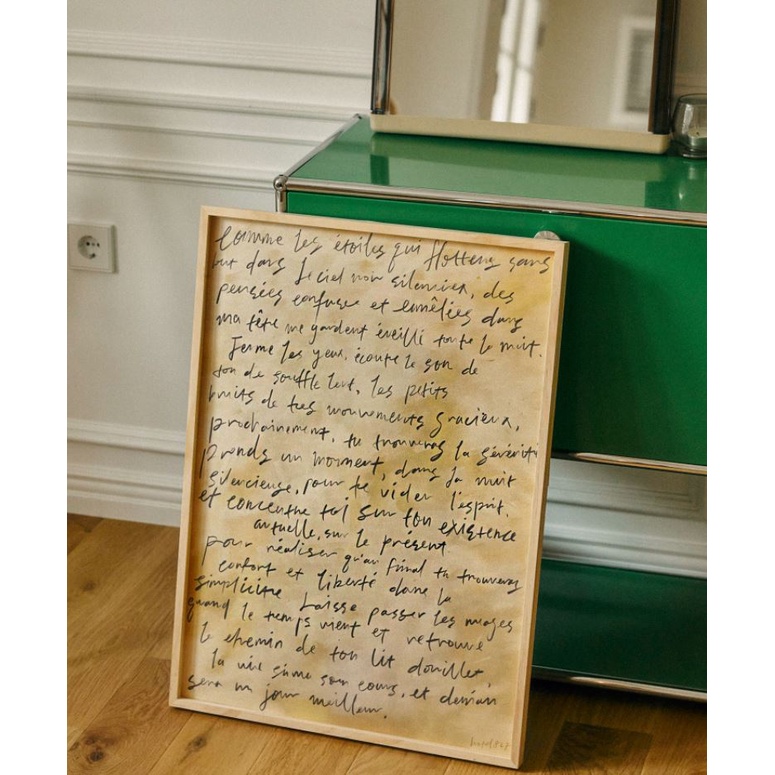 Comme les étoiles qui flottent sans
but dans le ciel noir silencieux, des
pensées confuses et emmêlées dans
ma tête me gardent éveillé toute la nuit.
Ferme les yeux, écoute le son de
ton de souffle lent, les petits
bruits de tes mouvements gracieux,
prochainement, tu trouveras la sévérité
prends un moment, dans la nuit
silencieuse, pour te vider l'esprit,
et concentre toi sur ton existence
actuelle, sur le présent
pour réaliser qu'au final tu trouveras
confort et liberté dans la
simplicité Laisse passer les nuages
quand le temps vient et retrouve
le chemin de ton lit douillet,
la vie suive son cours, et demain
sera un jour meilleur.